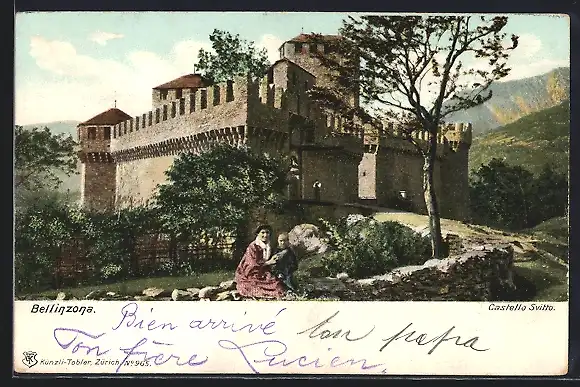 Bellinzona.
Castello Svitto.
Bien arrivé
Ton frère Lucien,
ton papa
Künzli-Tobler, Zürich, No 965.